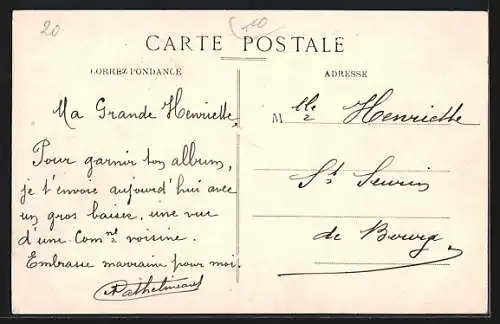 20
10
CARTE POSTALE
CORRESPONDANCE
ADRESSE
Ma Grande Henriette,
Pour garnir ton album,
je t'envoie aujourd'hui avec
un gros baiser, une vue
d'une Comne voisine.
Embrasse marrain pour moi.
M lle Henriette
St Seurin
de Bourg.